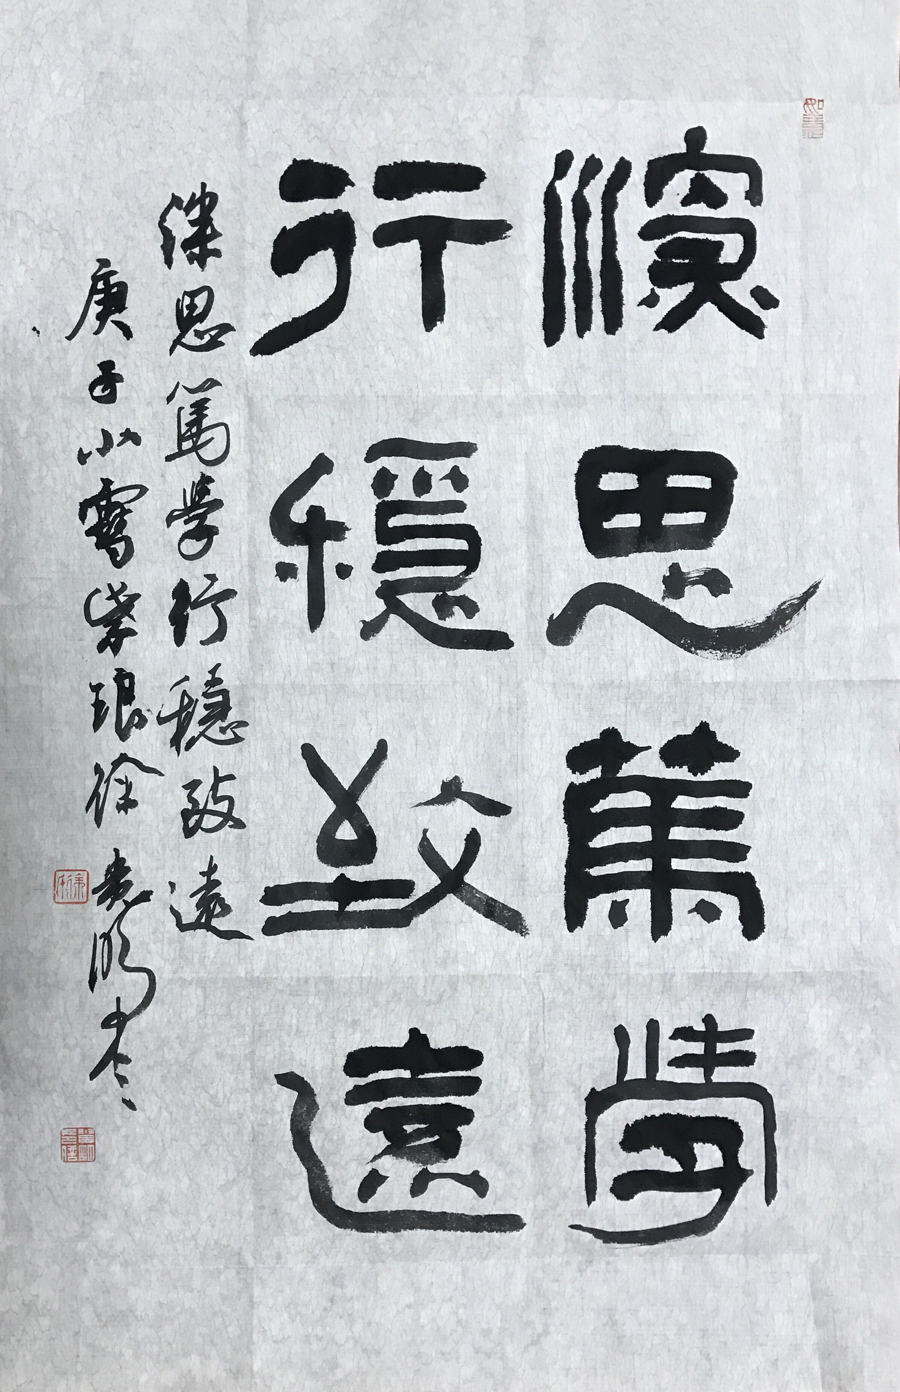 深思篤學
行穩致遠
深思篤學行穩致遠
庚子小雪紫琅徐